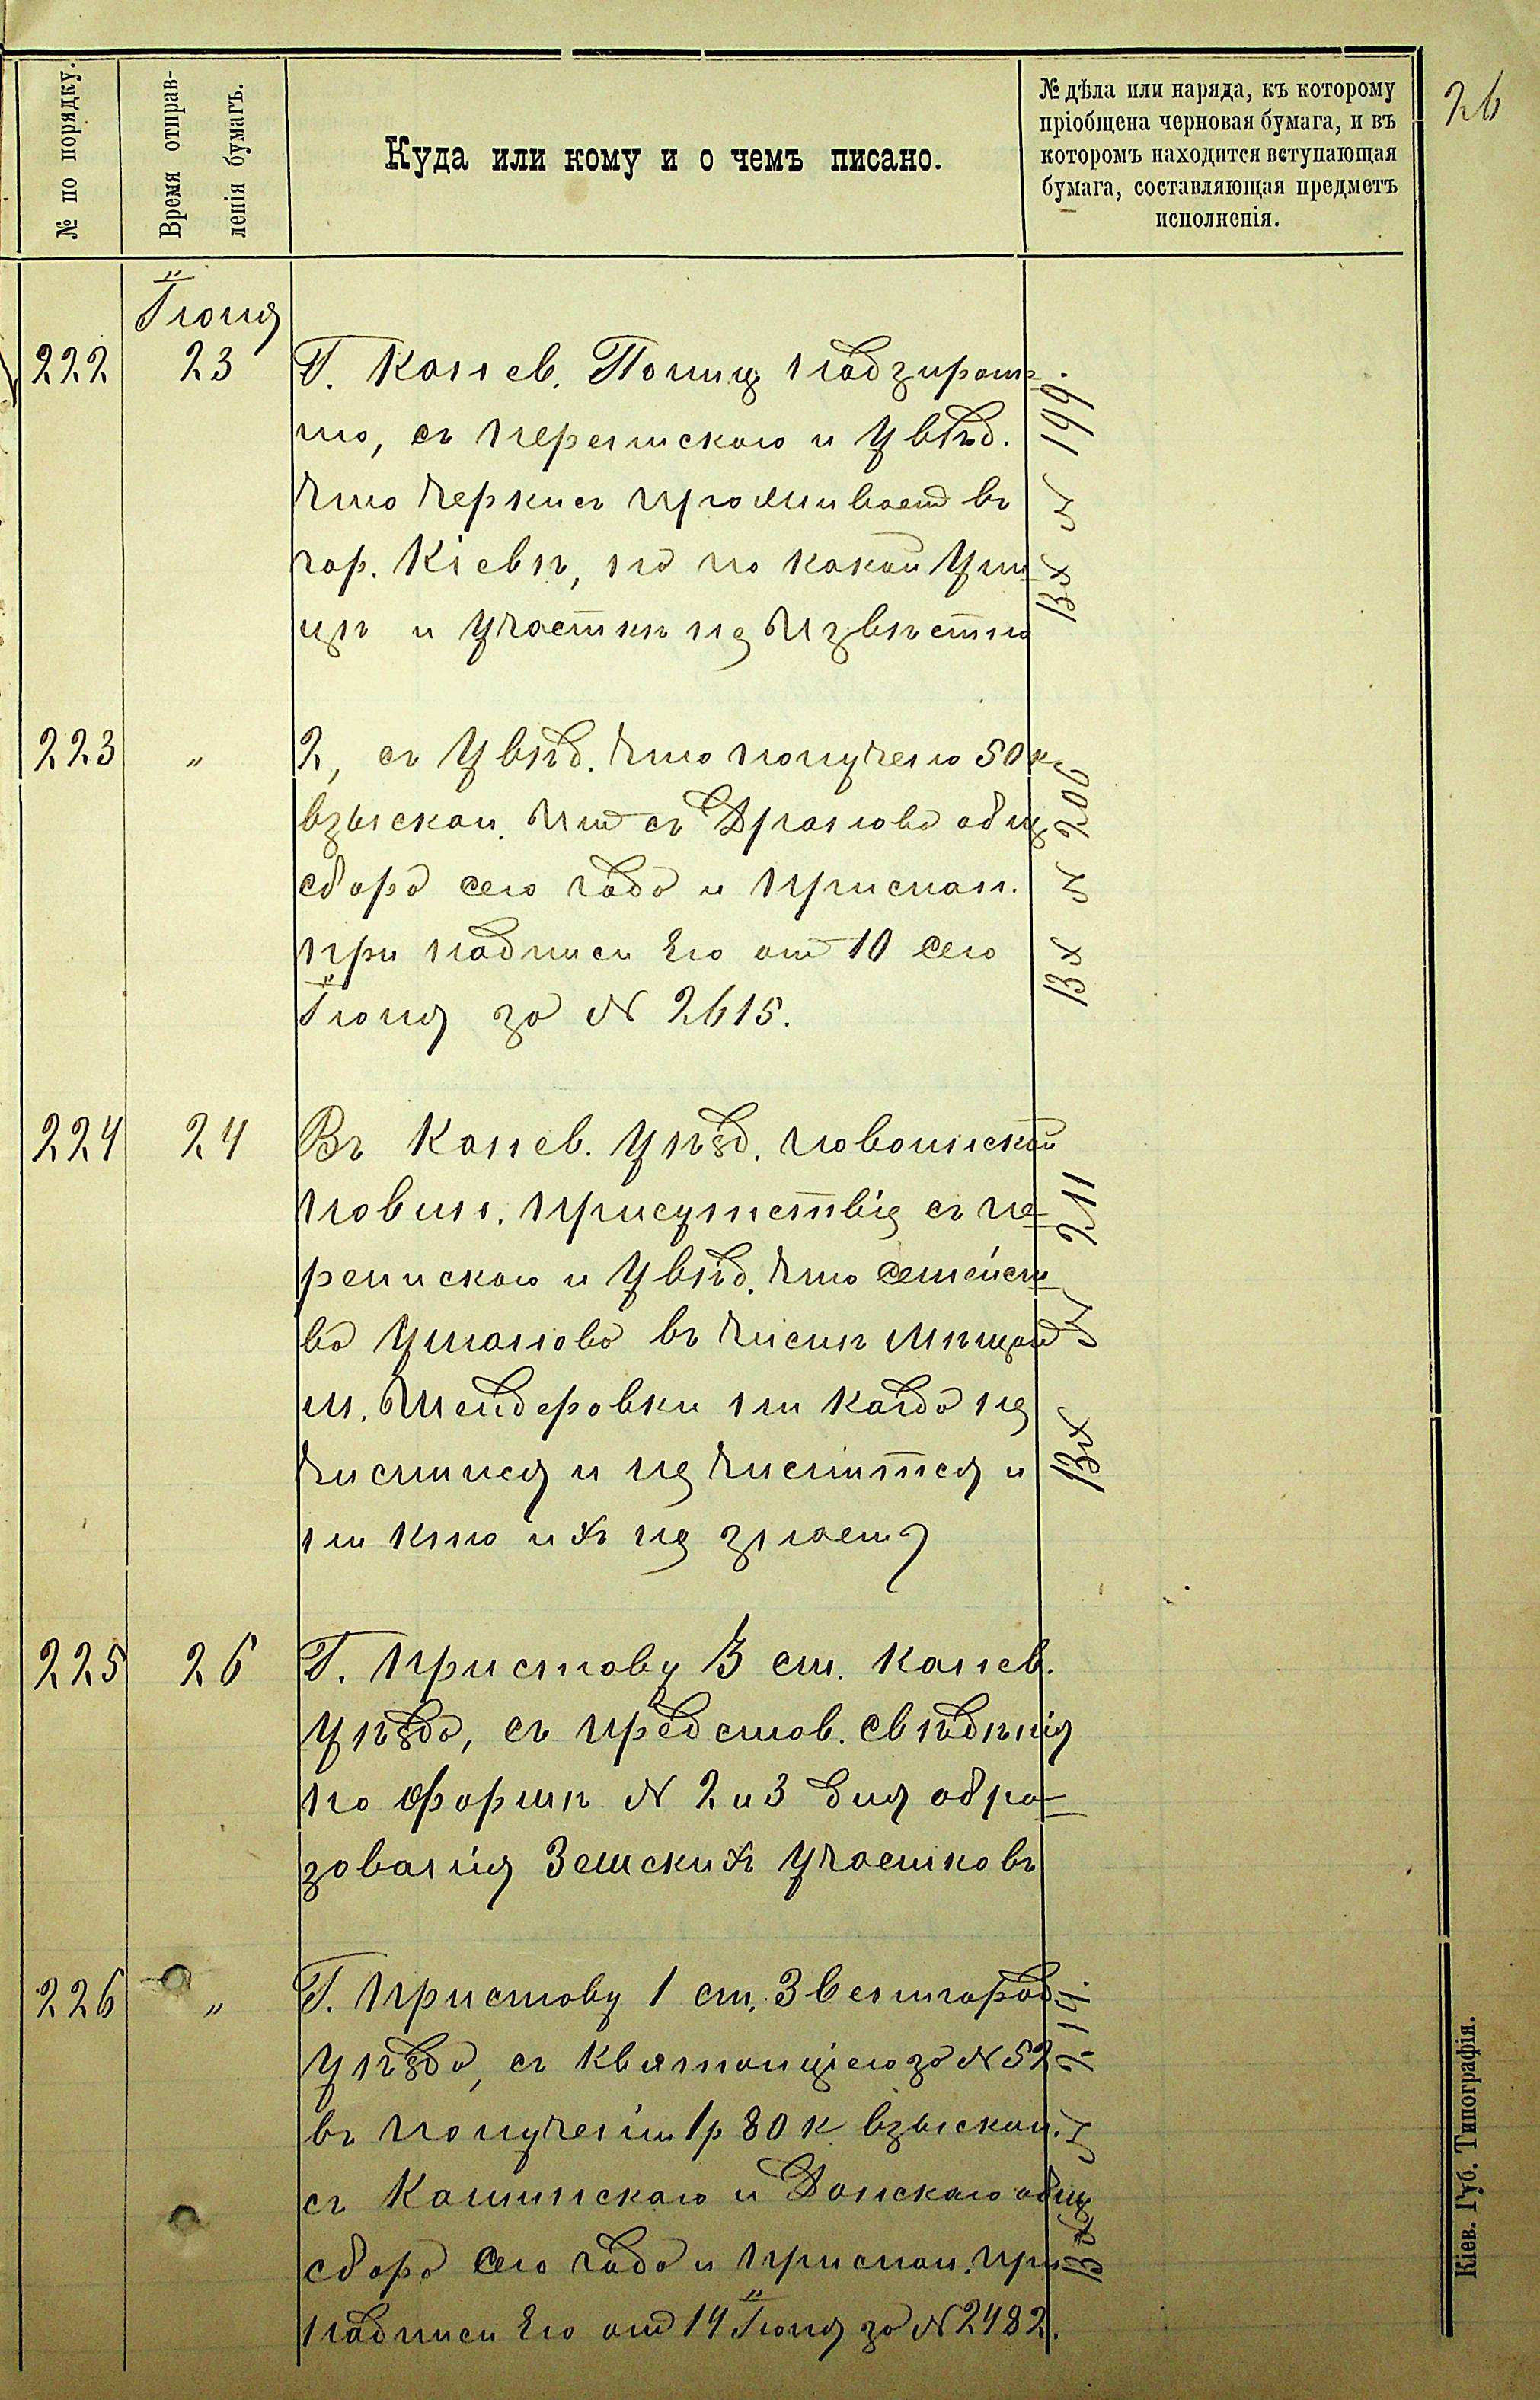 26
№ по порядку.
Время отправ-
ленія бумагъ.
Куда или кому и о чемъ писано.
№ дѣла или наряда, къ которому
пріобщена черновая бумага, и въ
которомъ находится вступающая
бумага, составляющая предметъ
исполненія.
Іюня
222 23 Г. Канев. Полиц. надзирате-
лю, съ перепискою и увѣд.
что проживает въ
гор. Кіевѣ, но по какой ули
цѣ и участкѣ не извѣстно
Вх N 199.
223 „ 2, съ увѣд. что получено 50 к
взыскан. им съ Драгнова общ
сбора сего года и прислан.
при надписи его от 10 сего
Іюня за N 2615.
Вх N 206
224 24 Въ Канев. уѣзд. по воинской
повин. присутствіе съ пе-
репискою и увѣд. что семейст
ва Уманова въ числѣ мѣщан
м. Шендеровки ни когда не
числился и не числится и
ни кто их не знает
Вх N 211
225 26 Г. Приставу 3 ст. Канев.
уѣзда, съ представ. свѣдѣнія
по формѣ N 2 и 3 для обра-
зованія Земских участковъ
226 „ Г. Приставу 1 ст. Звенигород.
уѣзда, съ квитанціею за N 52
въ полученіи 1 р 80 к взыскан.
съ Калинскаго и Донскаго общ
сбора сего года и прислан. при
надписи его от 14 Іюня за N 2482.
Вх N 214.
Кіев. Губ. Типографія.